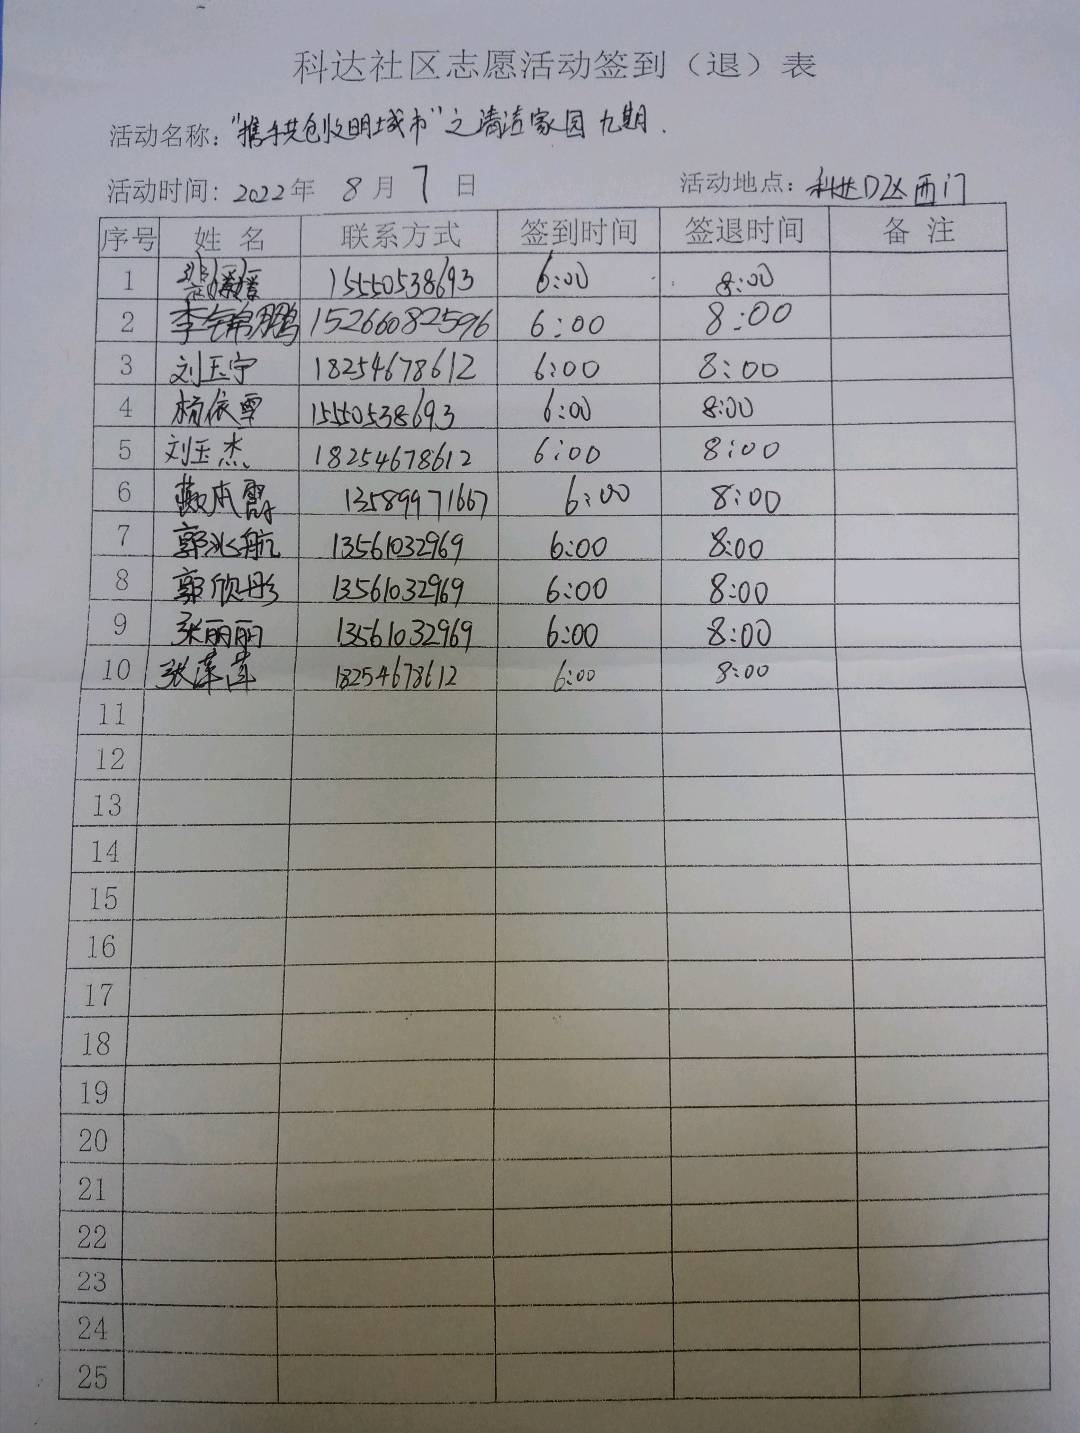 科达社区志愿活动签到（退）表
活动名称："携手共创文明城市"之清洁家园九期.
活动时间：2022年 8月7日 活动地点：科达D区西门
序号 姓名 联系方式 签到时间 签退时间 备注
1 媛媛 15550538693 6:00 8:00
2 李锦鹏 15266082596 6:00 8:00
3 刘玉宁 18254678612 6:00 8:00
4 杨依雪 15550538693 6:00 8:00
5 刘玉杰 18254678612 6:00 8:00
6 本霞 13589971667 6:00 8:00
7 郭兆航 13561032969 6:00 8:00
8 郭欣彤 13561032969 6:00 8:00
9 张丽丽 13561032969 6:00 8:00
10 张 18254678612 6:00 8:00
11
12
13
14
15
16
17
18
19
20
21
22
23
24
25